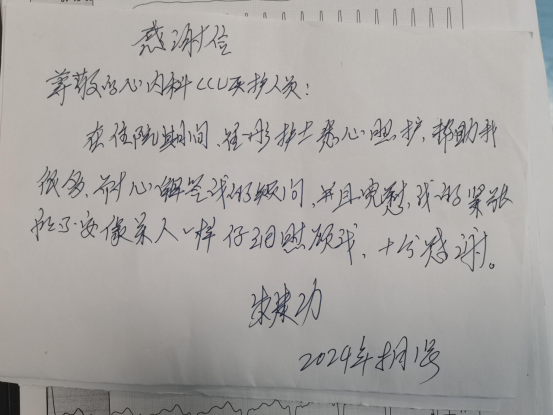 感谢信
尊敬的心内科CCU医护人员：
在住院期间，护士悉心照护，帮助我
很多，耐心解答我的疑问，并且宽慰我的紧张
不安，像亲人一样仔细照顾我，十分感谢。
朱建功
2024年月1号